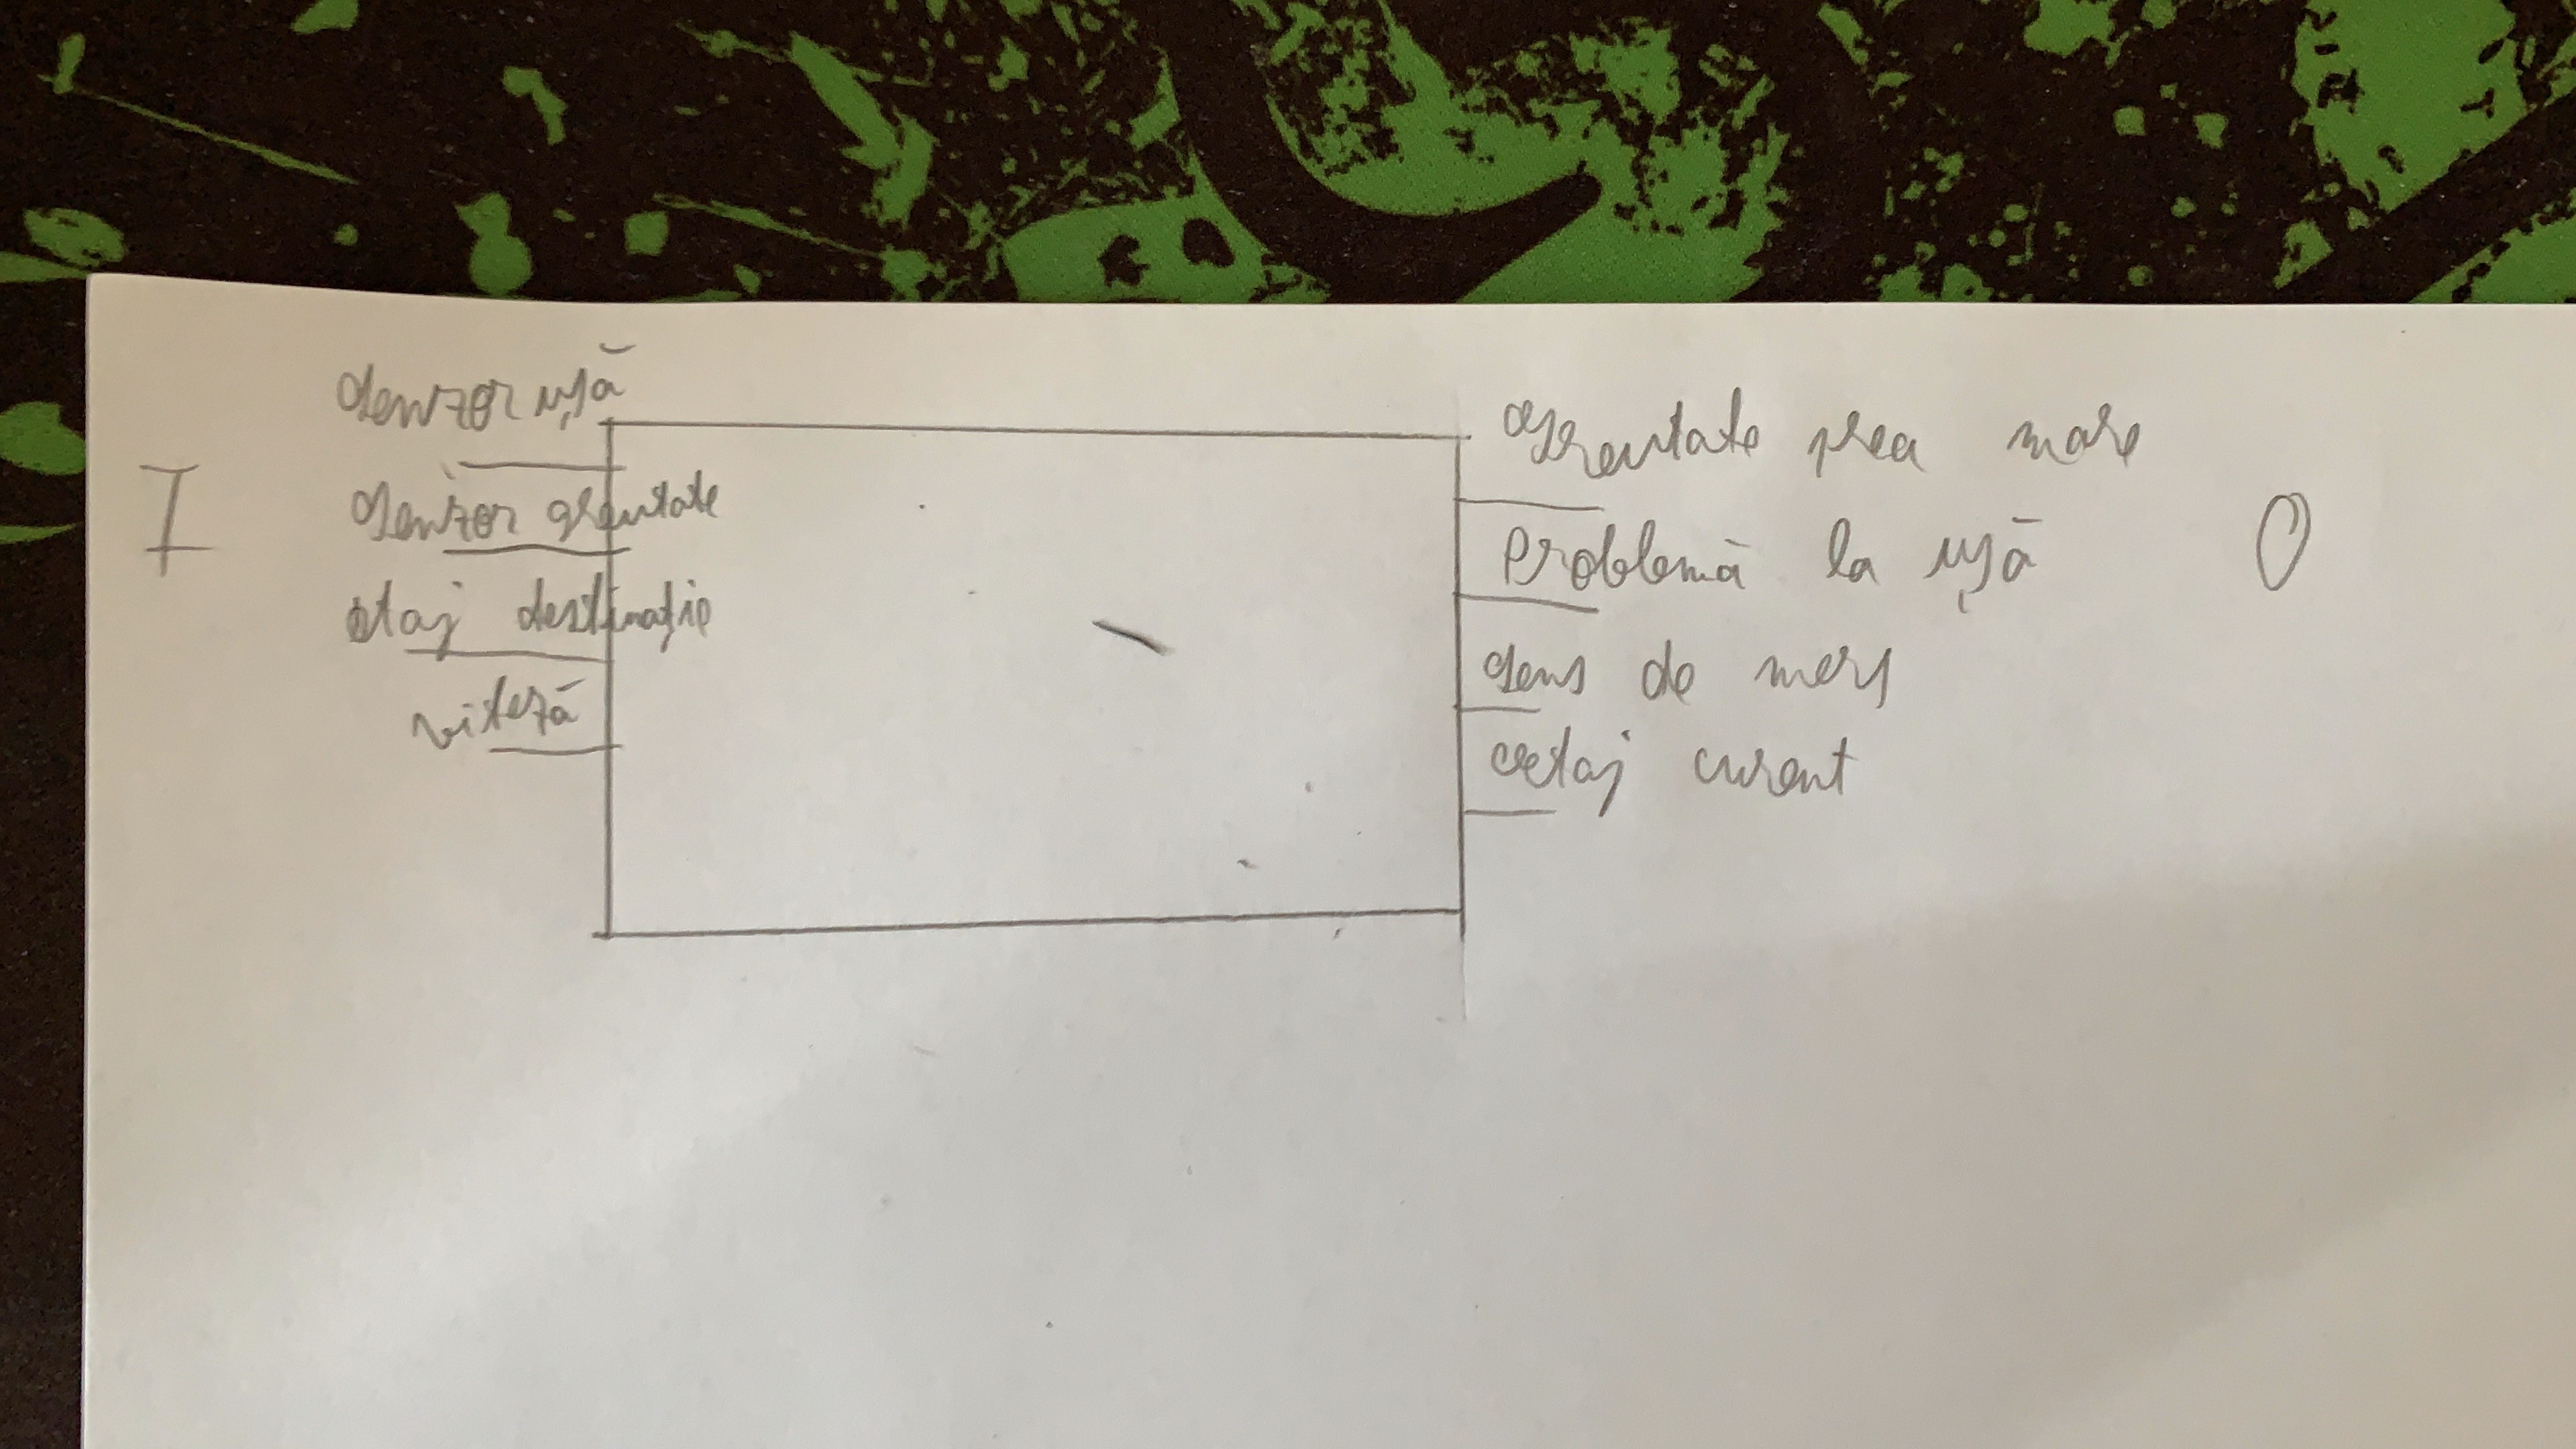 Senzor ușă
Senzor greutate
etaj destinație
viteză
I
Greutate prea mare
Problemă la ușă
Sens de mers
etaj curent
O